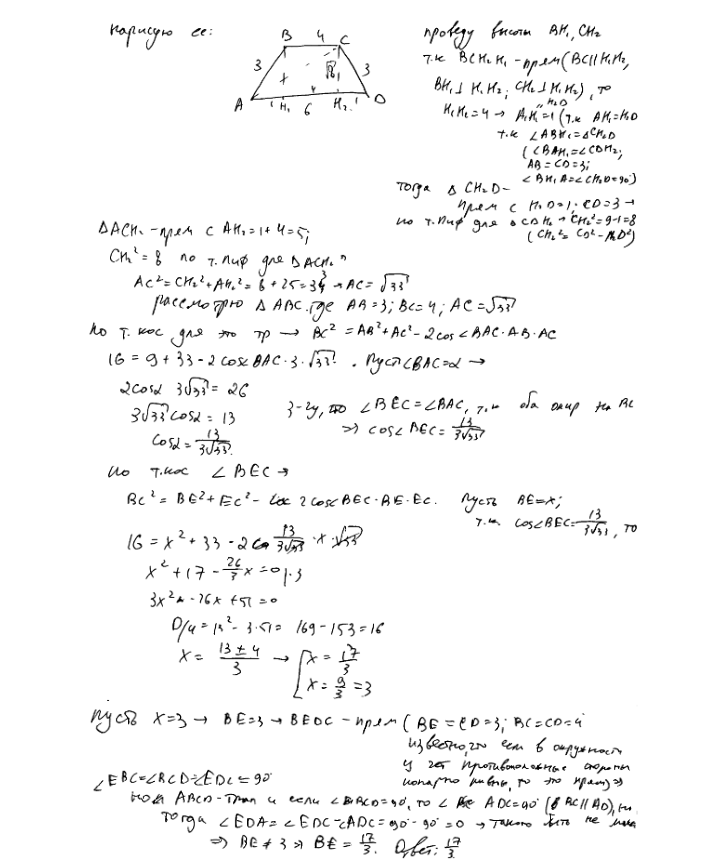 нарисую ее:
B 4 C
3 3
A 1 H₁ 4 H₂ 1 D
6
проведу высоты BH₁, CH₂
т.к BCH₂H₁ - прям (BC||H₁H₂,
BH₁⊥H₁H₂; CH₂⊥H₁H₂), то
H₂D
H₁H₂=4 → A₁H=1 (т.к AH₁=H₂D
т.к ∠ABH₁=ΔCH₂D
(∠BAH₁=∠CDH₂;
AB=CD=3;
∠BH₁A=∠CH₂D=90°)
тогда Δ CH₂D -
прям с H₂D=1; CD=3 →
по т.Пиф для ΔCDH₂ → CH₂²=9-1=8
(CH₂²=CD²-H₂D²)
ΔACH₂ - прям с AH₂=1+4=5;
CH₂²=8 по т.Пиф для ΔACH₂
AC²=CH₂²+AH₂²=8+25=33 → AC=√33
рассмотрю ΔABC, где AB=3; BC=4; AC=√33
по т.кос для это тр → BC²=AB²+AC²-2cos∠BAC·AB·AC
16=9+33-2cosBAC·3·√33. Пусть ∠BAC=α →
2cosα 3√33=26
3√33 cosα=13
cosα=13/3√33
3-2y, то ∠BEC=∠BAC, т.к оба опир на BC
=> cos∠BEC=13/3√33
по т.кос ∠BEC →
BC²=BE²+EC²-2cosBEC·BE·EC. Пусть BE=x;
т.к. cos∠BEC=13/3√33, то
16=x²+33-2·13/3√33·x·√33
x²+17-26/3x=0|·3
3x²-26x+51=0
D/4=13²-3·51=169-153=16
x=13±4/3 → [x=17/3
x=9/3=3
Пусть x=3 → BE=3 → BEDC - прям (BE=CD=3; BC=CD=4
известно, что если в окружности
у чет противоположные стороны
попарно равны, то это прям) =>
∠EBC=∠BCD=∠EDC=90°
но ABCD - трап и если ∠BCD=90°, то ∠ADC=90° (BC||AD),
тогда ∠EDA=∠EDC-∠ADC=90°-90°=0 → такого быть не может
=> BE≠3 → BE=17/3. Ответ: 17/3